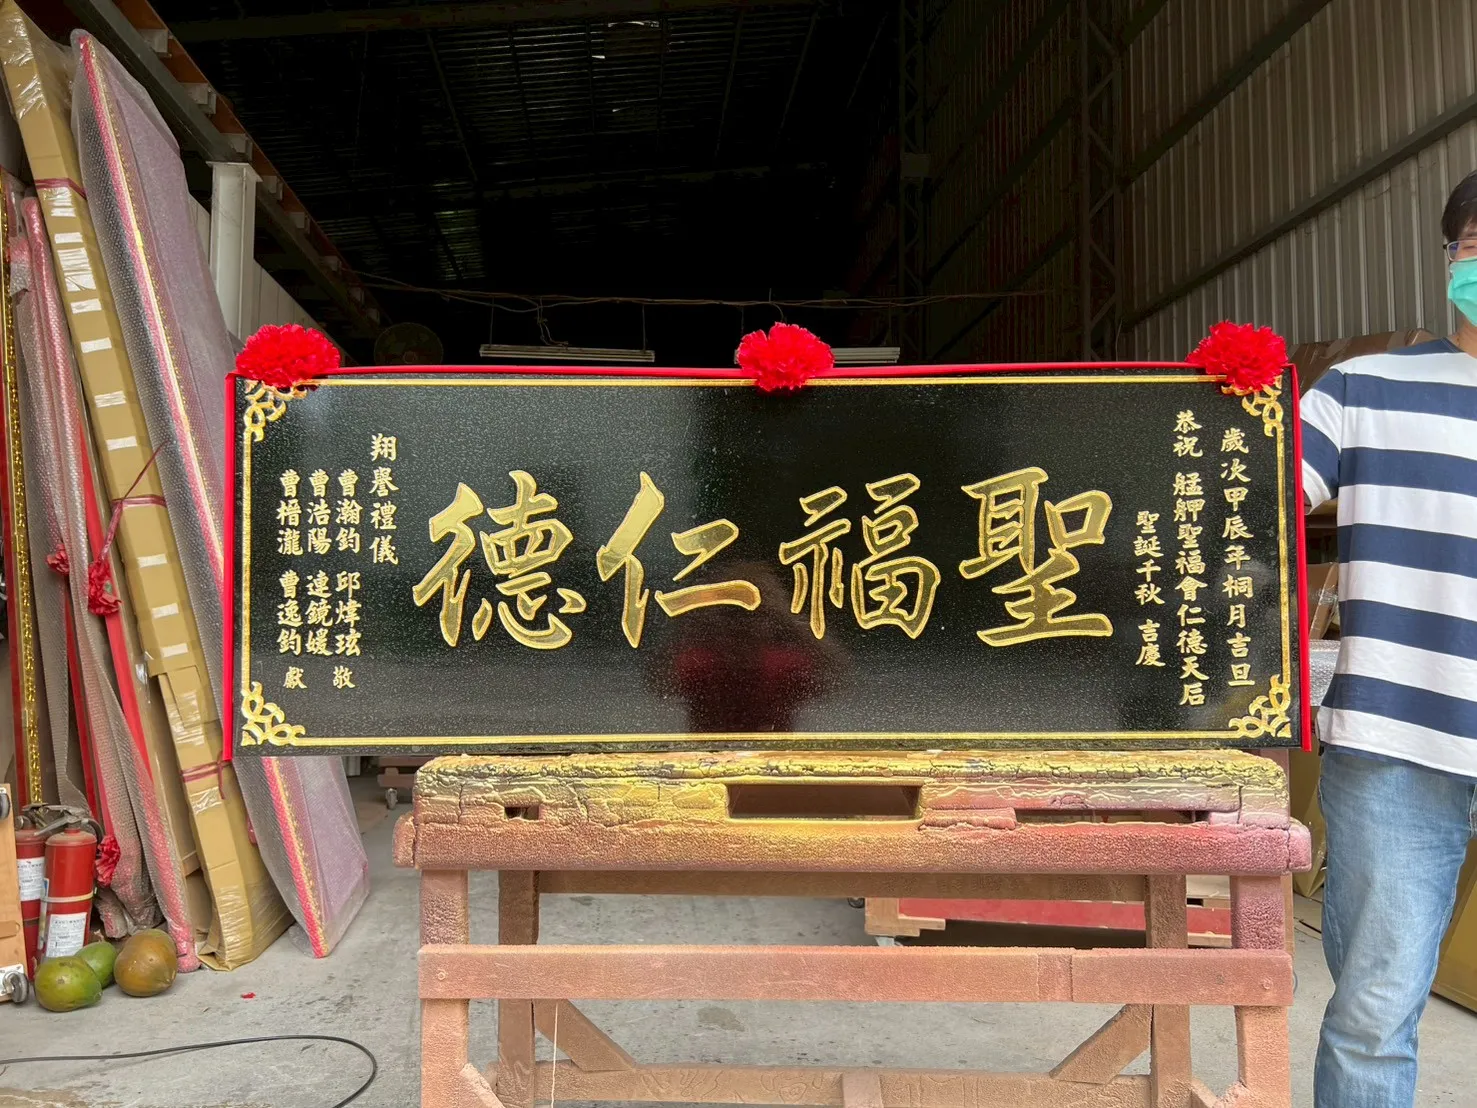 歲次甲辰年桐月吉旦
恭祝 艋舺聖福會仁德天后
聖誕千秋 吉慶
聖福仁德
翔譽禮儀
曹瀚鈞 邱煒玹 敬
曹浩陽 連鏡媛
曹榗瀧 曹逸鈞 獻